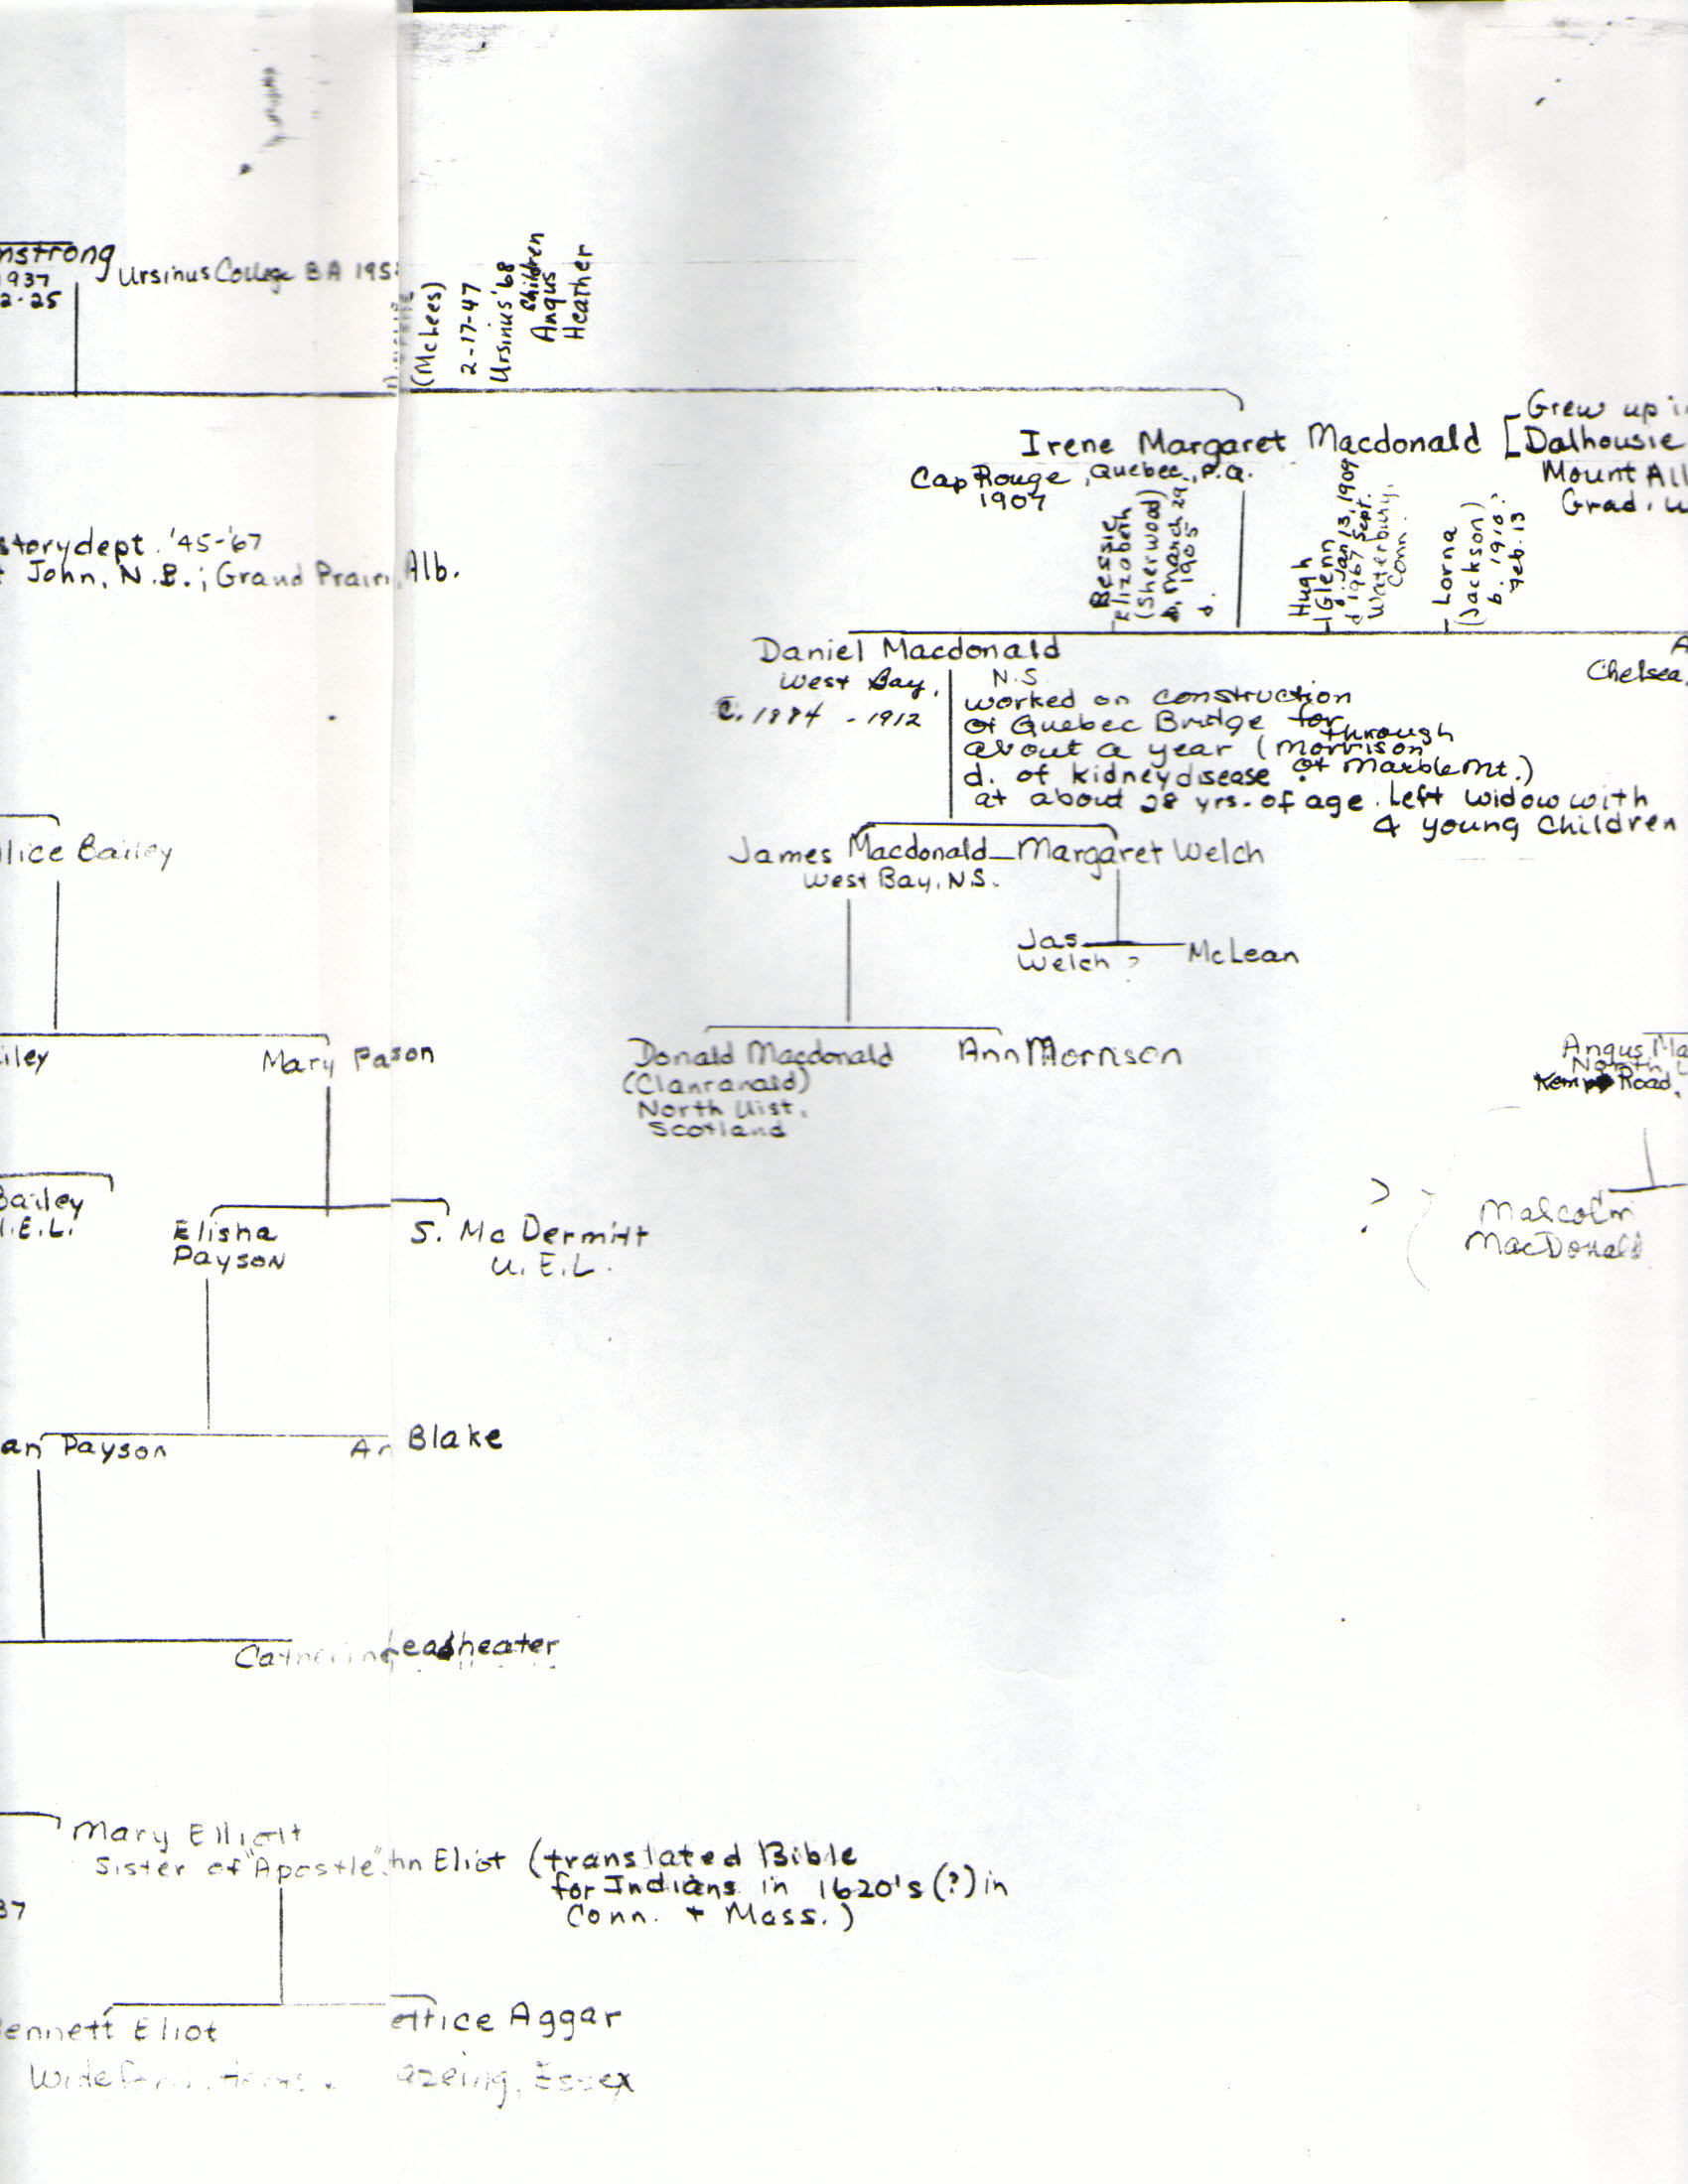 mstrong
1937
2-25
Ursinus College BA 195
(McLees)
2-17-47
Ursinus '68
Children
Angus
Heather
Irene Margaret Macdonald
Cap Rouge, Quebec, P.Q.
1907
[Grew up in
Dalhousie
Mount All
Grad.
Bessie
Elizabeth
(Sherwood)
b. March 29,
1905
d.
Hugh
Glenn
Jan 13, 1909
d 1967 Sept.
Waterbury,
Conn.
Lorna
(Jackson)
b. 1910?
Feb. 13
story dept. '45-'67
John, N.B.; Grand Prairi, Alb.
Daniel Macdonald
West Bay, N.S.
c. 1884 - 1912
worked on construction
of Quebec Bridge for
about a year (through
Morrison
of Marble Mt.)
d. of kidney disease
at about 28 yrs. of age. Left widow with
4 young children
A
Chelsea,
lice Bailey
James Macdonald — Margaret Welch
West Bay, N.S.
Jas
Welch ?
McLean
iley
Mary Pason
Donald Macdonald
(Clanranald)
North Uist,
Scotland
Ann Morrison
Angus Ma
North U
Kemp Road,
Bailey
.E.L.
Elisha
Payson
S. McDermitt
U.E.L.
?
Malcolm
MacDonald
an Payson
An Blake
Catherine Leadheater
Mary Elliott
Sister of "Apostle" hn Eliot (translated Bible
for Indians in 1620's (?) in
Conn. + Mass.)
37
ennett Eliot
ettice Aggar
azeing, Essex